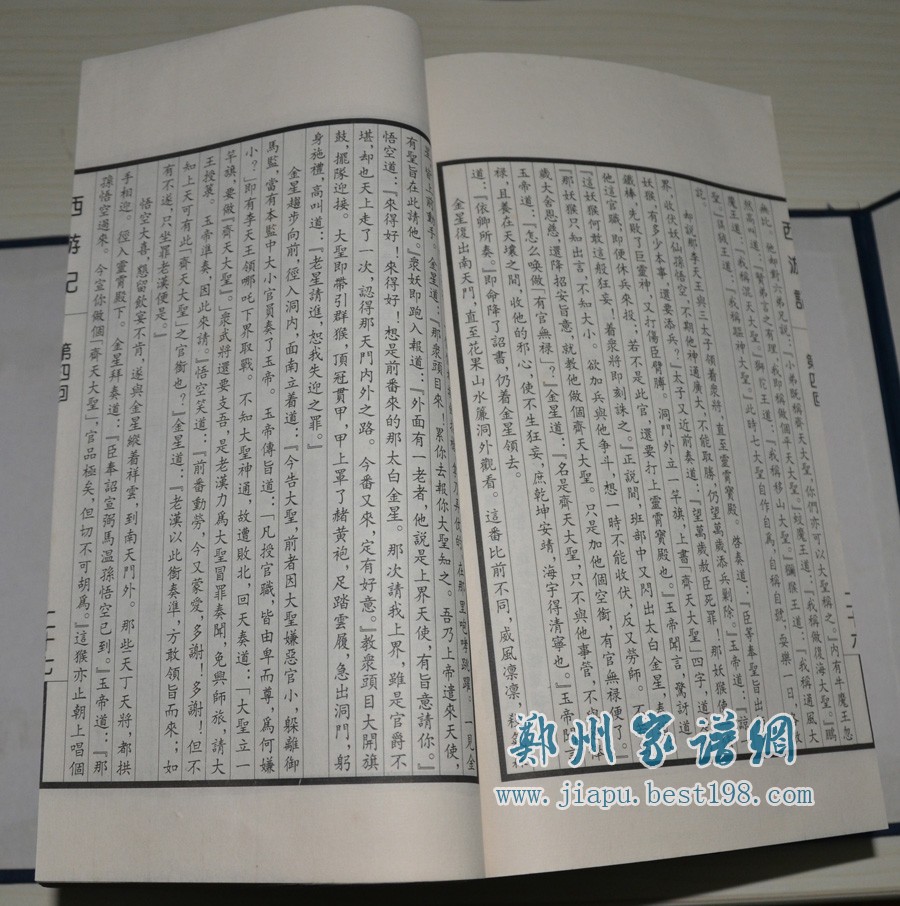 無比。他卻對六弟兄說：『小弟既稱齊天大聖，你們亦可以大聖稱之。』內有牛魔王忽
然高叫道：『賢弟言之有理，我即稱做個平天大聖。』蛟魔王道：『我稱做復海大聖。』鵬
魔王道：『我稱混天大聖。』獅狔王道：『我稱移山大聖。』獼猴王道：『我稱通風大
聖。』㺜狨王道：『我稱驅神大聖。』此時七大聖自作自為，自稱自號，耍樂一日，各散
訖。
却說那李天王與三太子領着衆將，直至靈霄寶殿。啓奏道：『臣等奉聖旨出
界，收伏妖仙孫悟空，不期他神通廣大，不能取勝，仍望萬歲添兵剿除。』玉帝道：『諒
妖猴，有多少本事，還要添兵？』太子又近前奏道：『望萬歲赦臣死罪！那妖猴使
鐵棒，先敗了巨靈神，又打傷臣臂膊。洞門外立一竿旗，上書『齊天大聖』四字，道是
他這官職，即便休兵來投；若不是此官，還要打上靈霄寶殿也。』玉帝聞言，驚訝道
『這妖猴何敢這般狂妄！着衆將即刻誅之。』正說間，班部中又閃出太白金星，奏
『那妖猴只知出言，不知大小。欲加兵與他爭斗，想一時不能收伏，反又勞師。不
歲大舍恩慈，還降招安旨意，就教他做個齊天大聖。只是加他個空銜，有官無祿便了。』
玉帝道：『怎么喚做『有官無祿』？』金星道：『名是齊天大聖，只不與他事管，不
祿，且養在天壤之間，收他的邪心，使不生狂妄，庶乾坤安靖，海宇得清寧也。』玉帝聞言
道：『依卿所奏。』即命降了詔書，仍着金星領去。
金星復出南天門，直至花果山水簾洞外觀看。這番比前不同，威風凜凜，殺氣
西游記
二十六
有聖旨在此請他。』衆妖即跑入報道：『外面有一老者，他說是上界天使，有旨意請你。』
悟空道：『來得好！來得好！想是前番來的那太白金星。那次請我上界，雖是官爵不
堪，却也天上走了一次，認得那天門內外之路。今番又來，定有好意。』教衆頭目大開旗
鼓，擺隊迎接。大聖即帶引群猴，頂冠貫甲，甲上罩了赭黃袍，足踏雲履，急出洞門，躬
身施禮，高叫道：『老星請進，恕我失迎之罪。』
金星趨步向前，徑入洞內，面南立着道：『今告大聖，前者因大聖嫌惡官小，躲離御
馬監，當有本監中大小官員奏了玉帝。玉帝傳旨道：『凡授官職，皆由卑而尊，爲何嫌
小？』即有李天王領哪吒下界取戰。不知大聖神通，故遭敗北，回天奏道：『大聖立一
竿旗，要做『齊天大聖』。』衆武將還要支吾，是老漢力爲大聖冒罪奏聞，免興師旅，請大
王授菉。玉帝準奏，因此來請。』悟空笑道：『前番動勞，今又蒙愛，多謝！多謝！但不
知上天可有此『齊天大聖』之官銜也？』金星道：『老漢以此銜奏準，方敢領旨而來；如
有不遂，只坐罪老漢便是。』
悟空大喜，懇留飲宴不肯，遂與金星縱着祥雲，到南天門外。那些天丁天將，都拱
手相迎。徑入靈霄殿下。金星拜奏道：『臣奉詔宣弼馬溫孫悟空已到。』玉帝道：『那
孫悟空過來。今宣你做個『齊天大聖』，官品極矣，但切不可胡爲。』這猴亦止朝上唱個
西游記 第四回
二十七
鄭州家譜網
www.jiapu.best198.com